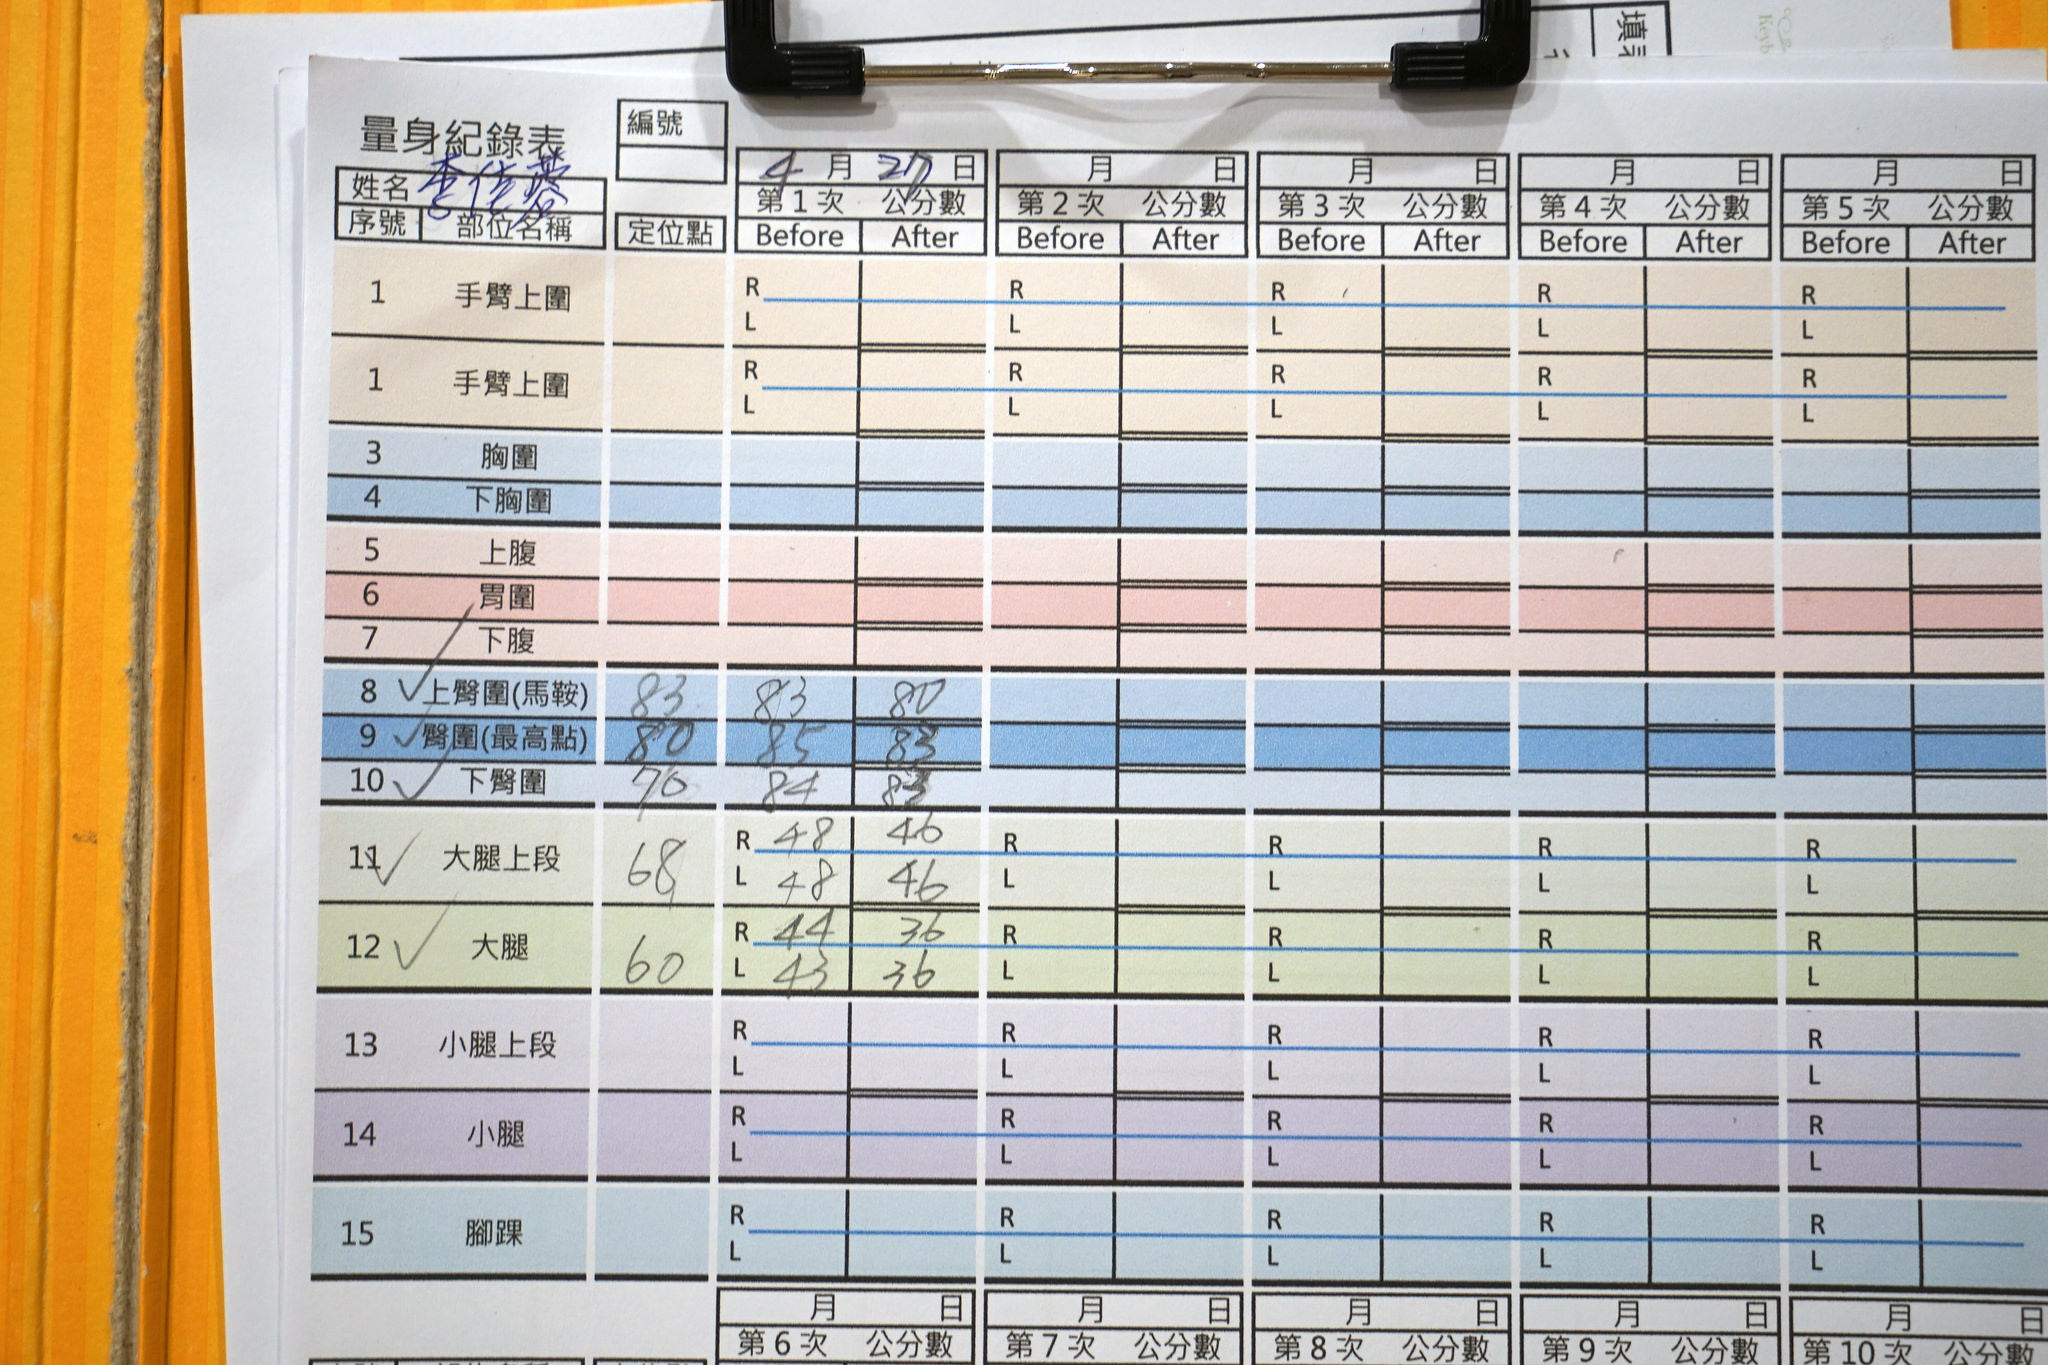 填
Keyb
量身紀錄表
編號
姓名 李佳蓉
4 月 27 日 月 日 月 日 月 日 月 日
第1次 公分數 第2次 公分數 第3次 公分數 第4次 公分數 第5次 公分數
序號 部位名稱 定位點 Before After Before After Before After Before After Before After
1 手臂上圍 R R R R R
L L L L L
1 手臂上圍 R R R R R
L L L L L
3 胸圍
4 下胸圍
5 上腹
6 胃圍
7 下腹
8 上臀圍(馬鞍) 83 83 80
9 臀圍(最高點) 80 85 83
10 下臀圍 70 84 83
11 大腿上段 68 R 48 46 R R R R
L 48 46 L L L L
12 大腿 60 R 44 36 R R R R
L 43 36 L L L L
13 小腿上段 R R R R R
L L L L L
14 小腿 R R R R R
L L L L L
15 腳踝 R R R R R
L L L L L
月 日 月 日 月 日 月 日 月 日
第6次 公分數 第7次 公分數 第8次 公分數 第9次 公分數 第10次 公分數